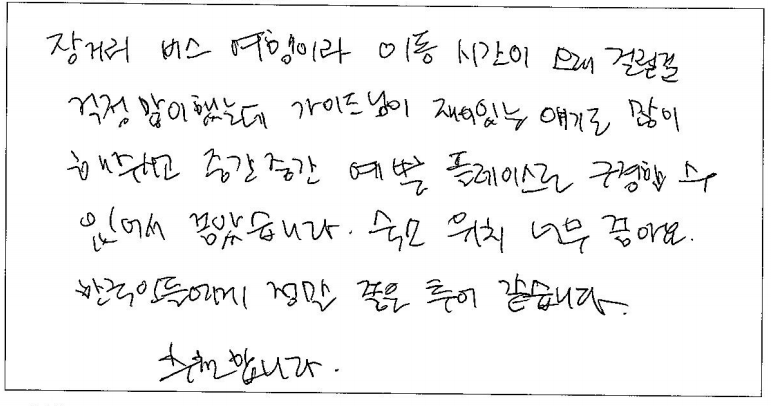 장거리 버스 여행이라 이동 시간이 오래 걸릴걸
걱정 많이했는데 가이드님이 재미있는 얘기도 많이
해주시고 중간중간 예쁜 플레이스도 구경할 수
있어서 좋았습니다. 숙소 위치 너무 좋아요.
한국인들에게 정말 좋은 투어 같습니다.
추천합니다.